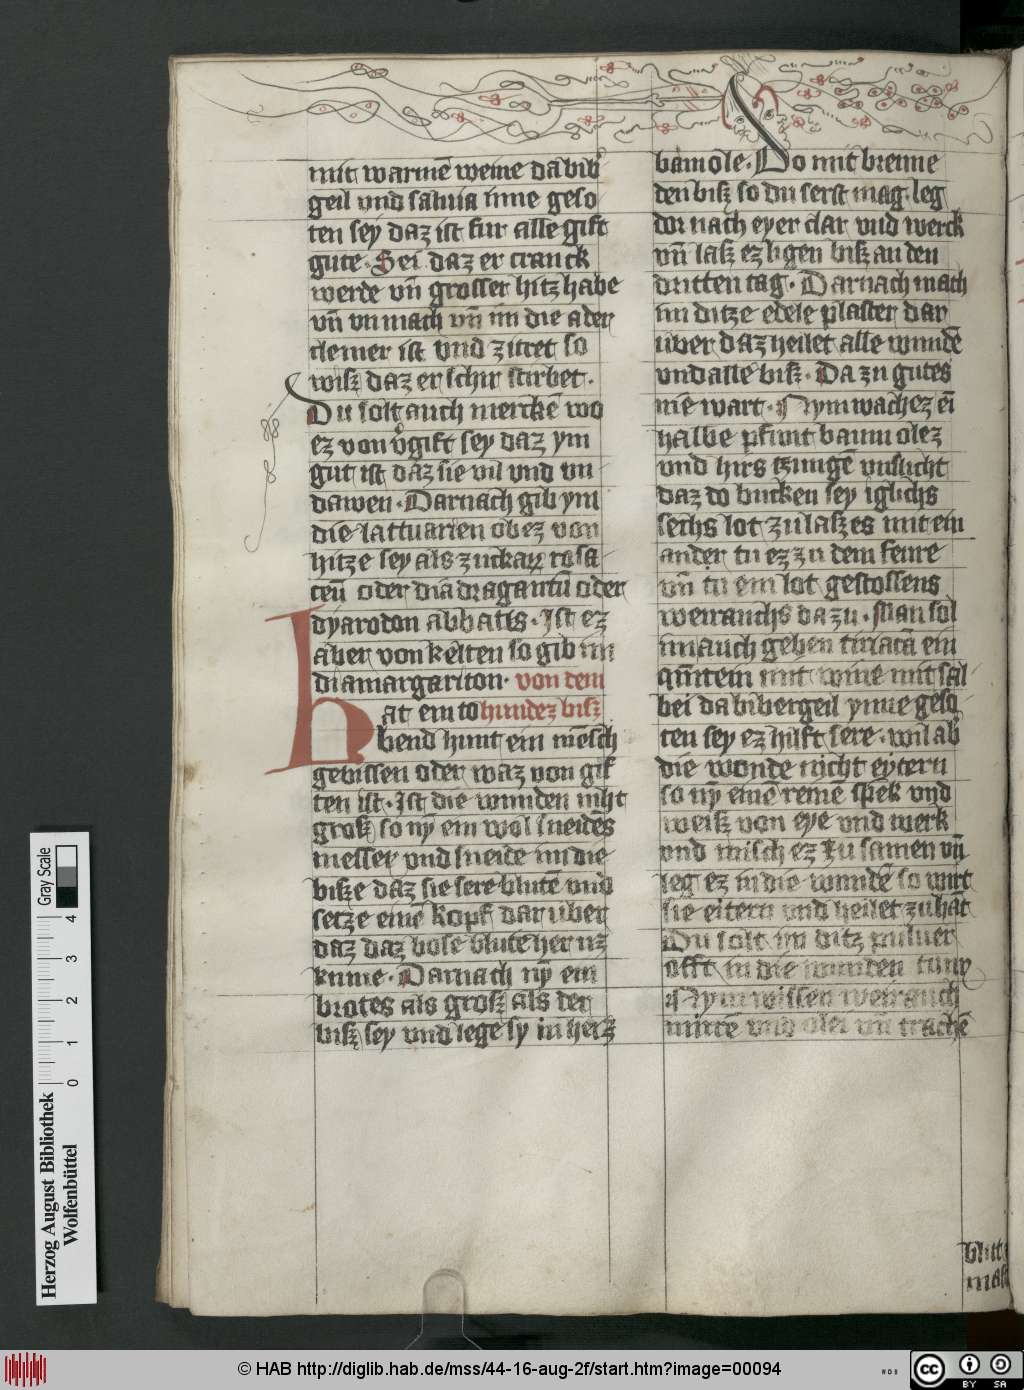 mit warmē weine da bib̛
geil vnd salbuia inne geso
ten sey daz ist fur alle gift
gute. Sei daz er cranck
werde vn̄ grosser hitz habe
vn̄ vnmach vn̄ im die ader
clemer ist vnd zitret so
wisz daz er schir stirbet.
Du solt auch merckē wo
ez von v̛gift sey daz ym
gut ist daz sie vil vnd vn
dawen. Darnach gib ym
die lattuarien ob ez von
hitze sey als zuckaꝝ rosa
ceū oder diadragantū oder
dyarodon abbatis. Ist ez
aber von kelten so gib im
diamargariton. von dem
hat ein to hundez bisz
bend hunt ein mēsch
gebissen oder waz von gif
ten ist. Ist die wunden niht
grosz so ny̅ ein wol sneidēs
messer vnd sneide im die
bisze daz sie sere blutē vnd
setze einē kopf dar uber
daz daz bose blute her uz
kume. Darnach ny̅ ein
brotes als grosz als der
bisz sey vnd lege sy in heisz
bamole. Do mit brenne
den bisz so du serst mag. leg
dor nach eyer clar vnd werck
vn̄ lasz ez ligen bisz an den
dritten tag. Darnach mach
im ditze edele plaster dar
uber daz heilet alle wundē
vnd alle bisz. Da zu gutes
nie wart. Nym wachez ei̅
halbe pfunt baum olez
vnd hirs tzungē vnslicht
daz do bucken sey iglichs
sechs lot zulasz es mit ein
ander tu ez zu dem feure
vn̄ tu ein lot gestossens
weirauchs dazu. Man sol
im auch geben tiriacā ein
qn̄tein mit wine mit sal
bei da bibergeil ynne geso
ten sey ez hilft sere. wil ab̛
die wonde nicht eytern
so ny̅ eine reinē spek vnd
weisz von eye vnd werk
vnd misch ez zu samen vn̄
leg ez in die wundē so wirt
sie eitern vnd heilet zuhāt
Du solt im ditz puluer
offt in die wunden tun
Nym wissen weirauch
mirrē vnd olei vn̄ trachē
Herzog August Bibliothek
Wolfenbüttel
Gray Scale
0 1 2 3 4
© HAB http://diglib.hab.de/mss/44-16-aug-2f/start.htm?image=00094
cc BY SA